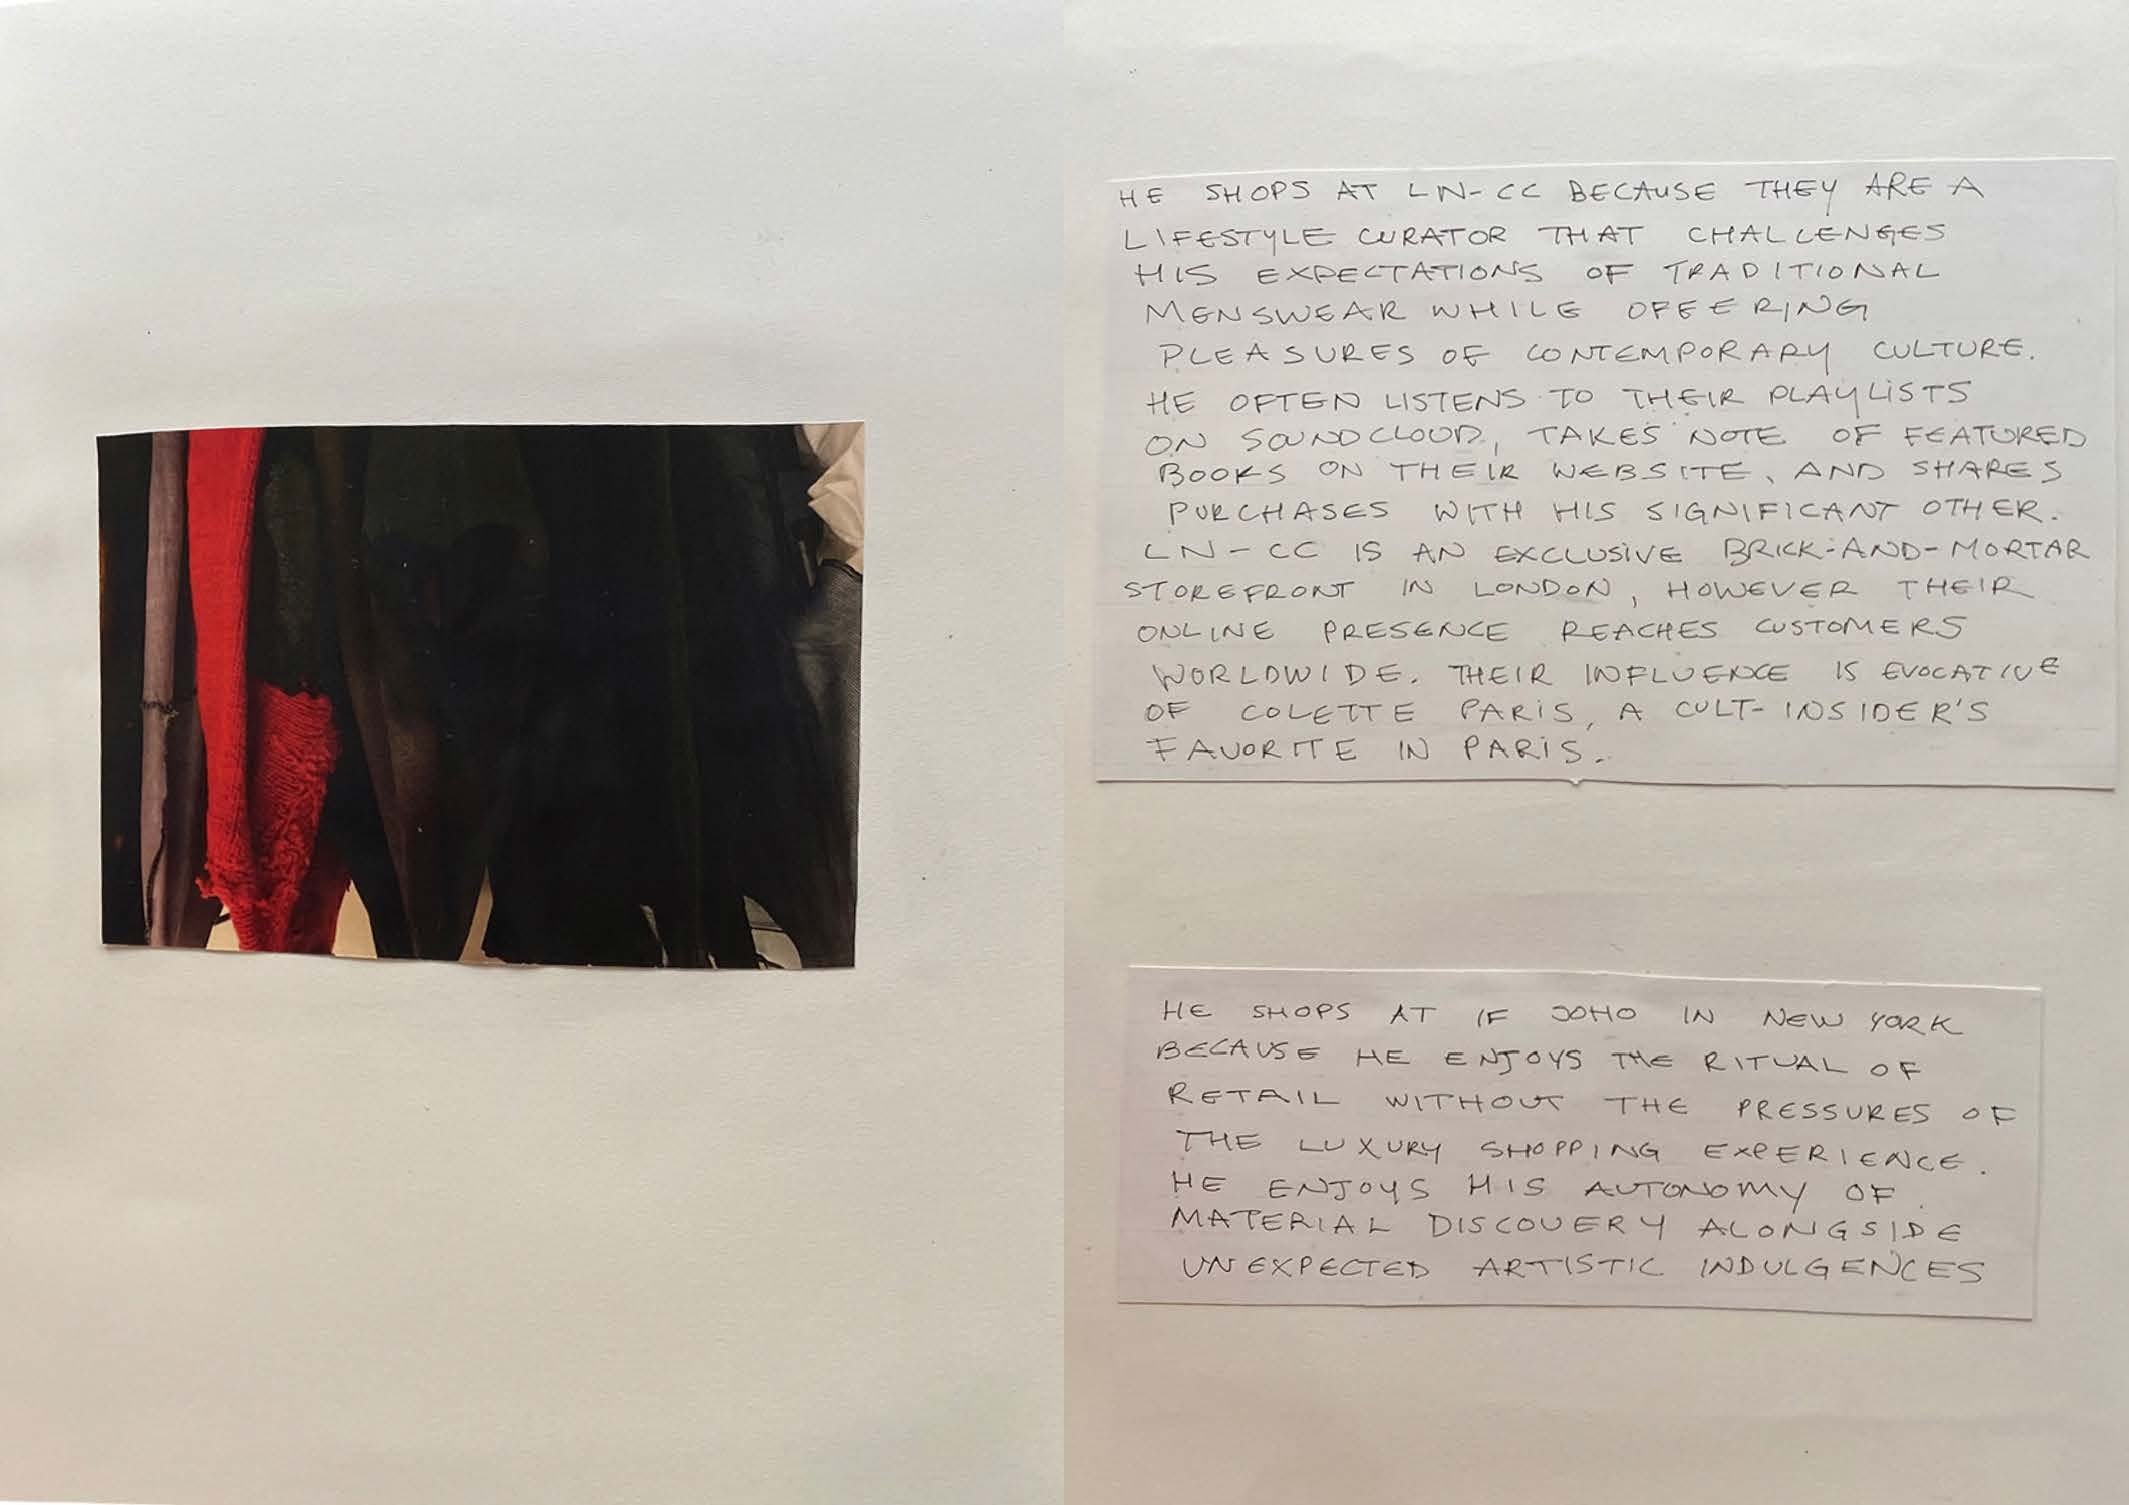 HE SHOPS AT LN-CC BECAUSE THEY ARE A
LIFESTYLE CURATOR THAT CHALLENGES
HIS EXPECTATIONS OF TRADITIONAL
MENSWEAR WHILE OFFERING
PLEASURES OF CONTEMPORARY CULTURE.
HE OFTEN LISTENS TO THEIR PLAYLISTS
ON SOUNDCLOUD, TAKES NOTE OF FEATURED
BOOKS ON THEIR WEBSITE, AND SHARES
PURCHASES WITH HIS SIGNIFICANT OTHER.
LN-CC IS AN EXCLUSIVE BRICK-AND-MORTAR
STOREFRONT IN LONDON, HOWEVER THEIR
ONLINE PRESENCE REACHES CUSTOMERS
WORLDWIDE. THEIR INFLUENCE IS EVOCATIVE
OF COLETTE PARIS, A CULT-INSIDER'S
FAVORITE IN PARIS.
HE SHOPS AT IF SOHO IN NEW YORK
BECAUSE HE ENJOYS THE RITUAL OF
RETAIL WITHOUT THE PRESSURES OF
THE LUXURY SHOPPING EXPERIENCE.
HE ENJOYS HIS AUTONOMY OF
MATERIAL DISCOVERY ALONGSIDE
UNEXPECTED ARTISTIC INDULGENCES